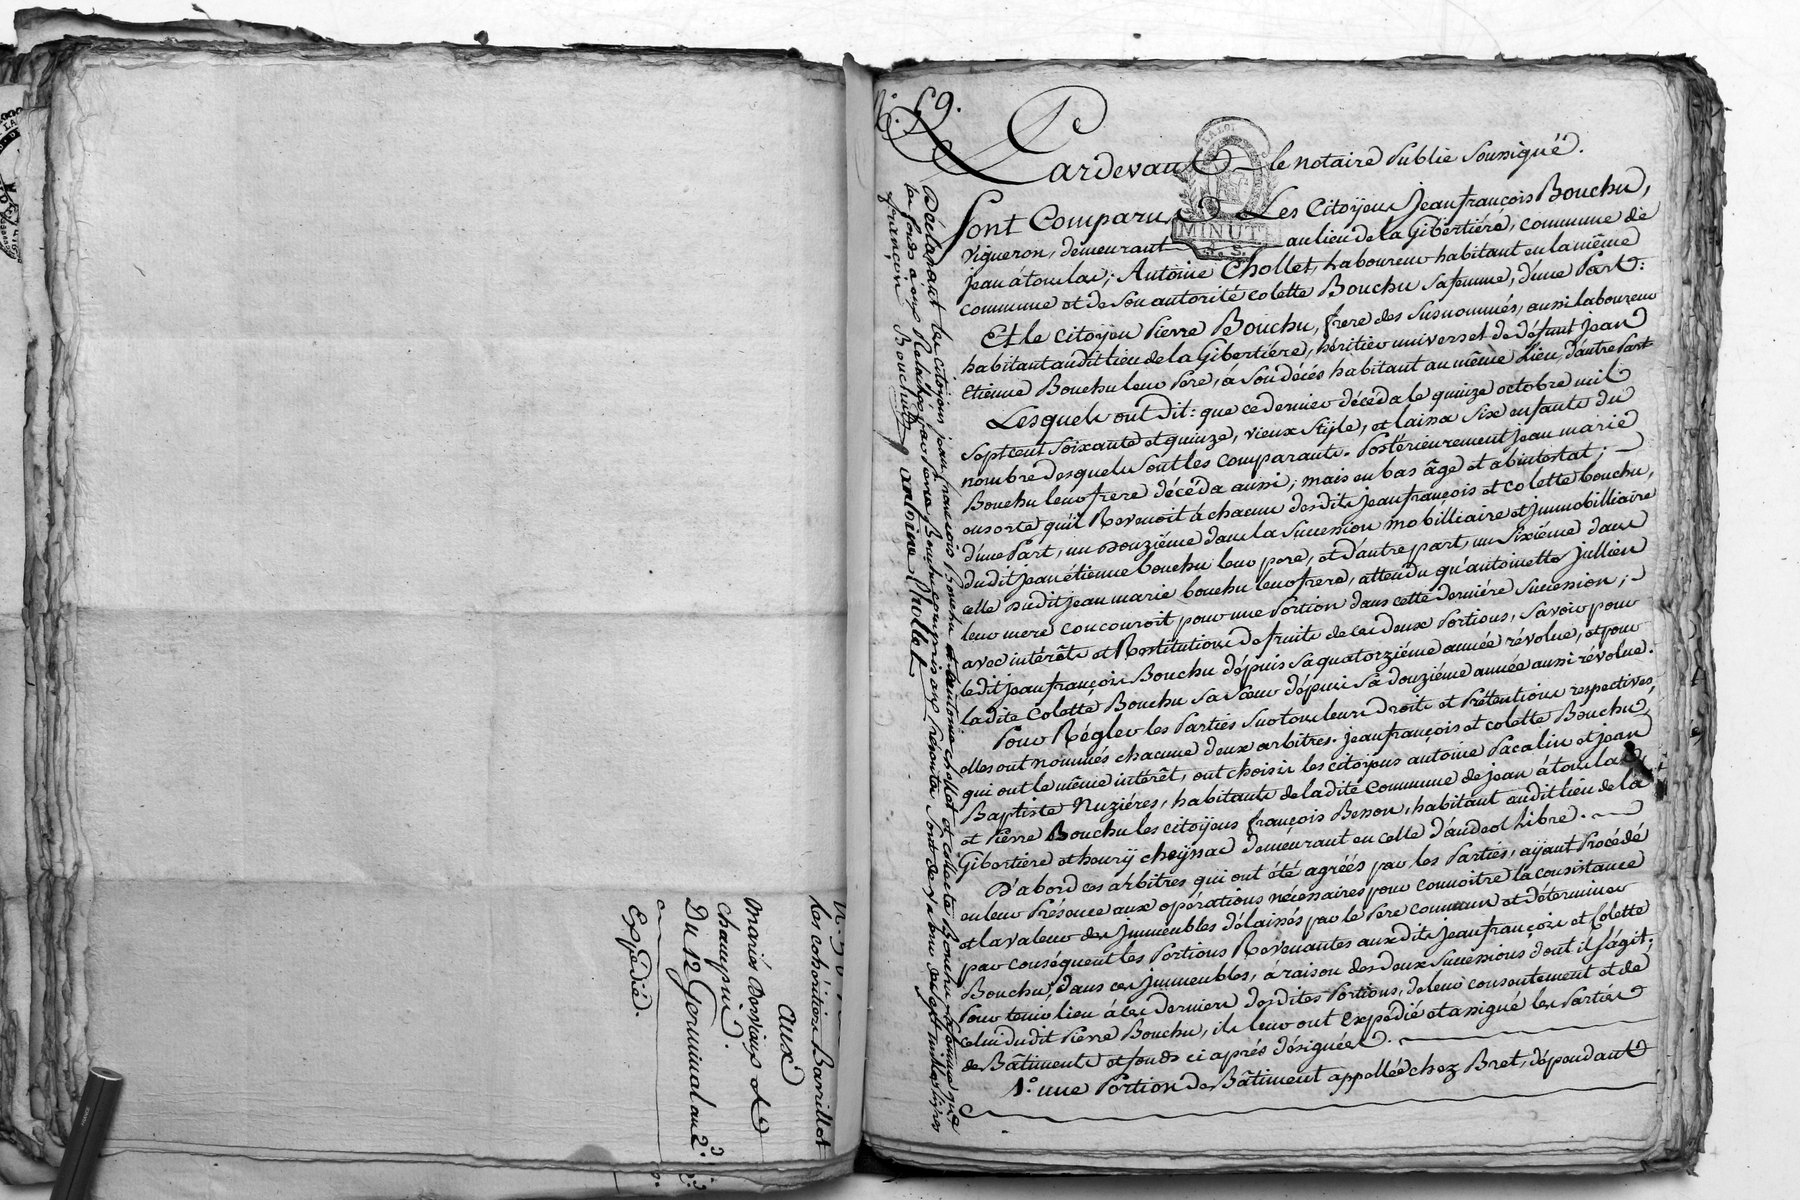 Les cohéritiers Barrillot
aux
mariés Dervieux et
champin.
Du 12 Germinal an 2.
Expédié.
N.° 59.
Pardevant le notaire Public soussigné.
LA LOI
MINUTE
Sont Comparus Les Citoÿens Jean françois Bouchu,
vigneron, demeurant au lieu de la Gibertiére, commune de
jean à toulas; Antoine Chollet, Laboureur habitant en la même
commune et de son autorité colette Bouchu sa femme, d'une Part:
Et le citoÿen Pierre Bouchu, frere des susnommés, aussi laboureur
habitant audit lieu de la Gibertiére, héritier universel de défunt jean
Etienne Bouchu leur Pere, à son décés habitant au même Lieu, d'autre Part
Lesquels ont dit: que ce dernier décéda le quinze octobre mil
sept cent soixante et quinze, vieux stÿle, et laissa six enfants du
nombre desquels sont les comparants. Postérieurement jean marie
Bouchu leur frere décéda aussi; mais en bas âge et abintestat;
ensorte qu'il Revenoit à chacun desdits jean françois et colette bouchu,
d'une Part, un Douziéme dans la Succession mobilliaire et jmmobilliaire
dudit jean étienne bouchu leur pere, et d'autre part, un sixiéme dans
celle dudit jean marie bouchu leur frere, attendu qu'antoinette jullien
leur mere concouroit pour une Portion dans cette derniére Succession;
avec intérêts et Restitutions de fruits de ces deux Portions, savoir pour
ledit jean françois Bouchu dépuis sa quatorziéme année révolue, et pour
ladite Colette Bouchu sa sœur dépuis sa douziéme année aussi révolue.
Pour Régler les Parties sur tous leurs droits et Prétentions respectives,
elles ont nommés chacune deux arbitres. jean françois et colette Bouchu
qui ont le même intérêt, ont choisis les citoyens antoine Pacalin et jean
Baptiste Nuziéres, habitants de ladite Commune de jean à toulas
et Pierre Bouchu les citoÿens françois Besson, habitant audit lieu de la
Gibertiére et henrÿ cheÿssac demeurant en celle d'andeol Libre.
D'abord ces arbitres qui ont été agréés par les Parties, aÿant Procédé
en leur Présence aux opérations nécessaires pour connoitre la consistance
et la valeur des jmmeubles délaissés par le Pere commun et déterminer
par conséquent les Portions Revenantes auxdits jean françois et Colette
Bouchu, dans ces jmmeubles, à raison des deux Successions dont il s'agit;
Pour tenir lieu à ces derniers desdites Portions, de leur consentement et de
celui dudit Pierre Bouchu, ils leur ont Expédié et assigné les Parties
de Bâtiments et fonds ci après désignées.
1.° une Portion de Bâtiment appellée chez Bret, dépendant
Déclarant les citoyens jean françois Bouchu et antoine chollet et collette Bouchu sa femme que
les fonds à eux Relachés par Pierre Bouchu
françois Bouchu antoine Chollet